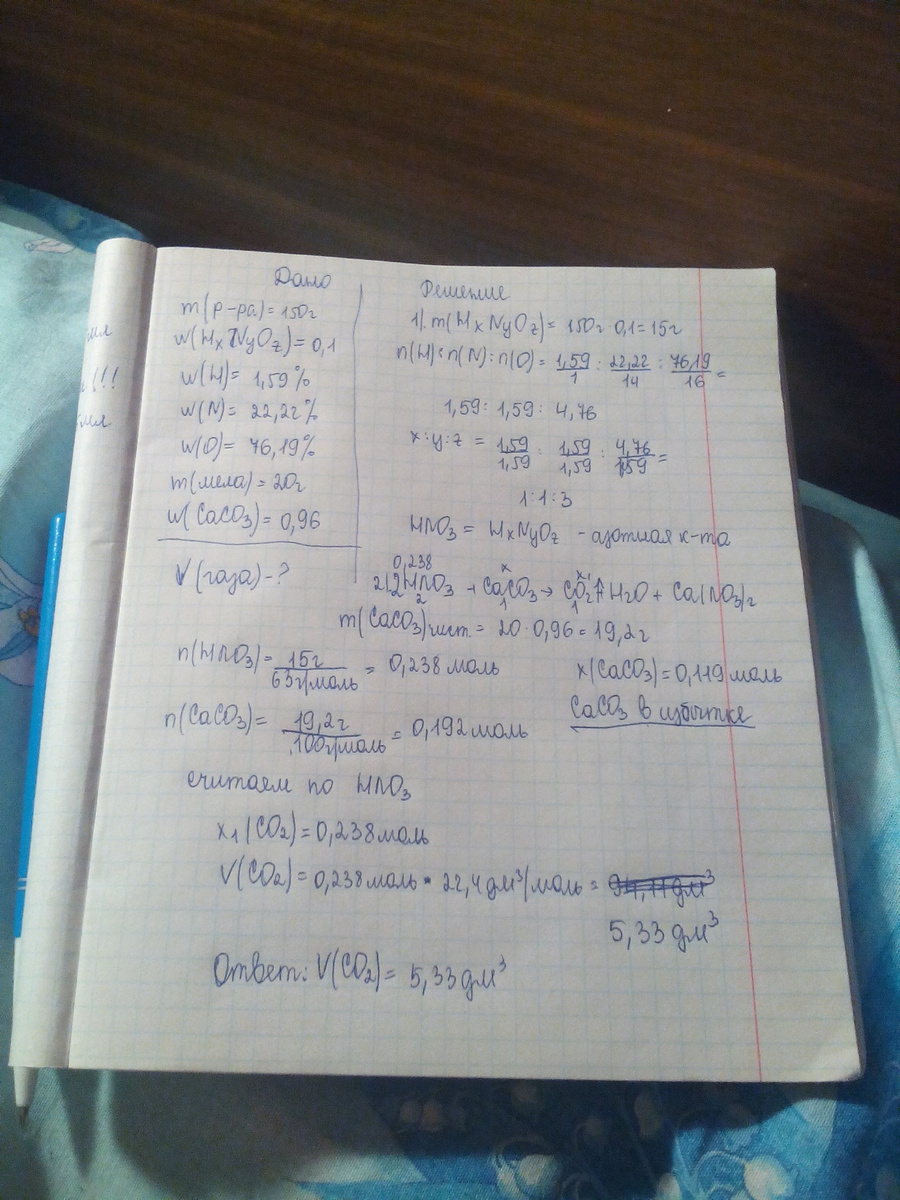 Дано
m(р-ра) = 150г
w(HxNyOz) = 0,1
w(H) = 1,59%
w(N) = 22,22%
w(O) = 76,19%
m(мела) = 20г
w(CaCO3) = 0,96
V(газа) - ?
Решение
1). m(HxNyOz) = 150г · 0,1 = 15г
n(H) : n(N) : n(O) = 1,59/1 : 22,22/14 : 76,19/16 =
1,59 : 1,59 : 4,76
x : y : z = 1,59/1,59 : 1,59/1,59 : 4,76/1,59 =
1 : 1 : 3
HNO3 = HxNyOz - азотная к-та
0,238 x x1
2) 2HNO3 + CaCO3 → CO2↑ + H2O + Ca(NO3)2
2 1 1
m(CaCO3)чист. = 20 · 0,96 = 19,2г
n(HNO3) = 15г / 63г/моль = 0,238 моль
x(CaCO3) = 0,119 моль
n(CaCO3) = 19,2г / 100г/моль = 0,192 моль
CaCO3 в избытке
считаем по HNO3
x1(CO2) = 0,238 моль
V(CO2) = 0,238 моль · 22,4 дм³/моль =
5,33 дм³
Ответ: V(CO2) = 5,33 дм³
мл
!!!